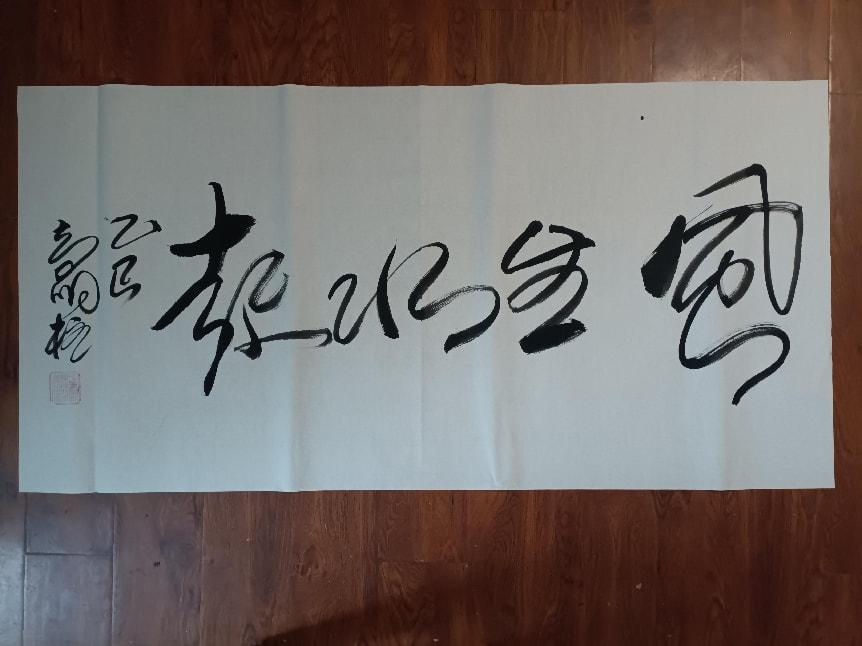 風生水起
乙巳